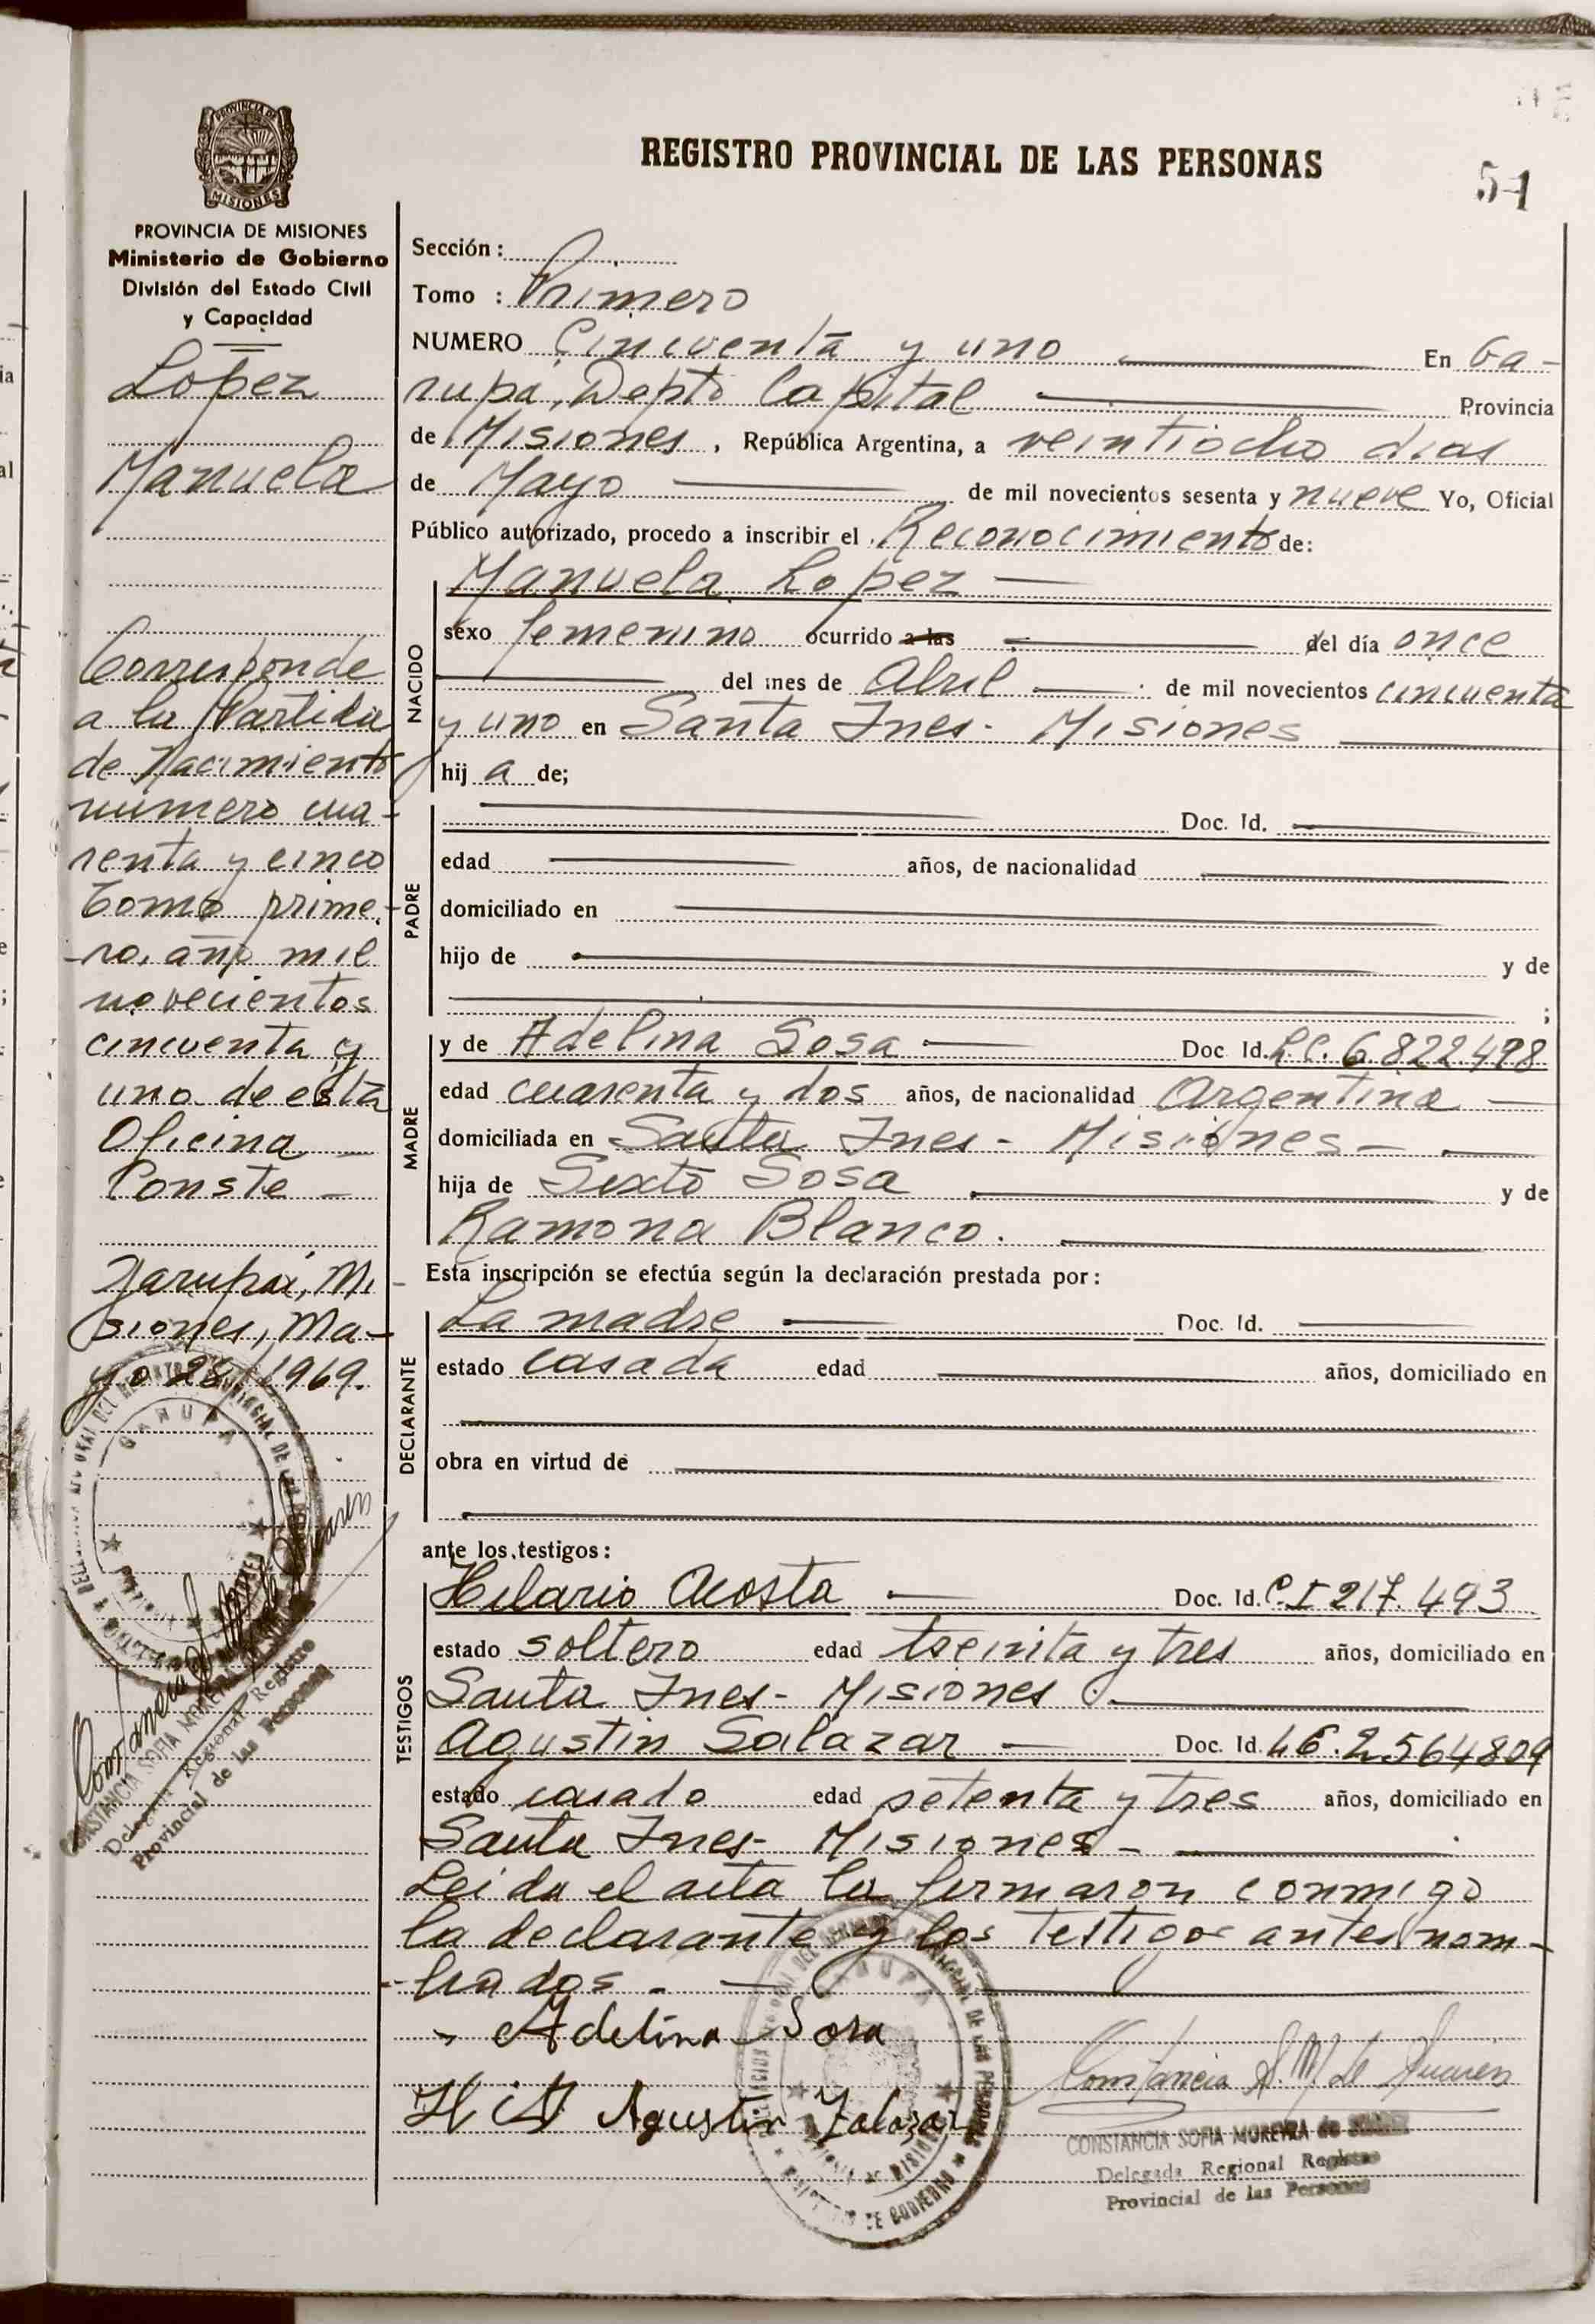 REGISTRO PROVINCIAL DE LAS PERSONAS
51
PROVINCIA DE
MISIONES
PROVINCIA DE MISIONES
Ministerio de Gobierno
División del Estado Civil
y Capacidad
Lopez
Manuela
Corresponde
a la Partida
de Nacimiento
número cua-
renta y cinco
Tomo prime-
ro, año mil
novecientos
cincuenta y
uno de esta
Oficina —
Conste —
Garupá, Mi-
siones, Ma-
yo 28/1969.
GARUPA
CONSTANCIA SOFIA MOREYRA
Delegada Regional Registro
Provincial de las Personas
Sección :
Tomo : Primero
NUMERO Cincuenta y uno — En Ga-
rupá, Depto Capital — Provincia
de Misiones, República Argentina, a veintiocho dias
de Mayo — de mil novecientos sesenta y nueve Yo, Oficial
Público autorizado, procedo a inscribir el Reconocimiento de:
Manuela Lopez —
NACIDO
sexo femenino ocurrido a las — del día once
— del mes de Abril — de mil novecientos cincuenta
y uno en Santa Ines - Misiones —
hij a de;
PADRE
— Doc. Id. —
edad — años, de nacionalidad —
domiciliado en —
hijo de — y de
— ;
MADRE
y de Adelina Sosa — Doc Id. L.C. 6822498
edad cuarenta y dos años, de nacionalidad Argentina —
domiciliada en Santa Ines - Misiones - —
hija de Sixto Sosa — y de
Ramona Blanco. —
Esta inscripción se efectúa según la declaración prestada por:
DECLARANTE
La madre — Doc. Id. —
estado casada edad — años, domiciliado en
—
obra en virtud de —
—
ante los testigos:
TESTIGOS
Hilario Acosta — Doc. Id. C.I 217.493
estado soltero edad treinita y tres años, domiciliado en
Santa Ines - Misiones. —
Agustin Salazar — Doc. Id. 2.564809
estado casado edad setenta y tres años, domiciliado en
Santa Ines - Misiones - —
Leida el acta la firmaron conmigo
la declarante y los testigos antes nom-
brados. — —
Adelina Sosa
H A Agustin Zalazar
Constancia S. M. de Suarez
CONSTANCIA SOFIA MOREYRA de SUAREZ
Delegada Regional Registro
Provincial de las Personas
GARUPA